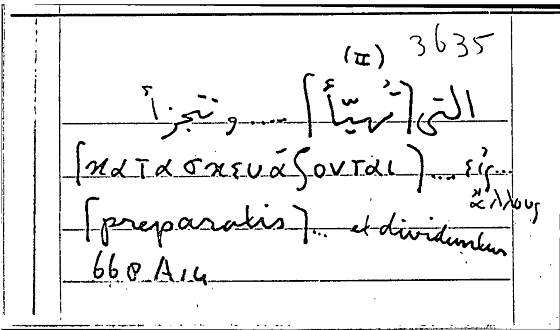 (II) 3635
التى [تُهيّأ] ..... و تتجزأ
[κατασκευάζονται] .... εἰς ...
ἄλλους
[preparatis] ... et dividuntur
668 A14